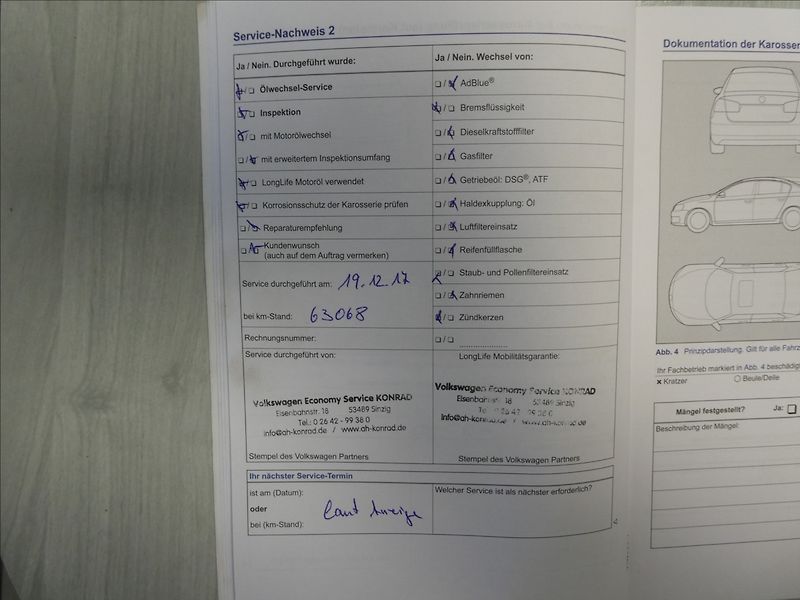 Service-Nachweis 2
Ja / Nein. Durchgeführt wurde:
Ölwechsel-Service
Inspektion
mit Motorölwechsel
mit erweitertem Inspektionsumfang
LongLife Motoröl verwendet
Korrosionsschutz der Karosserie prüfen
Reparaturempfehlung
Kundenwunsch
(auch auf dem Auftrag vermerken)
Service durchgeführt am: 19.12.17
bei km-Stand: 63068
Rechnungsnummer:
Service durchgeführt von:
Volkswagen Economy Service KONRAD
Eisenbahnstr. 18 53489 Sinzig
Tel.: 0 26 42 - 99 38 0
info@ah-konrad.de / www.ah-konrad.de
Stempel des Volkswagen Partners
Ja / Nein. Wechsel von:
AdBlue®
Bremsflüssigkeit
Dieselkraftstofffilter
Gasfilter
Getriebeöl: DSG®, ATF
Haldexkupplung: Öl
Luftfiltereinsatz
Reifenfüllflasche
Staub- und Pollenfiltereinsatz
Zahnriemen
Zündkerzen
LongLife Mobilitätsgarantie:
Volkswagen Economy Service KONRAD
Eisenbahnstr. 18 53489 Sinzig
Te 0 26 42 - 99 38 0
info@ah-konrad.de / www.ah-konrad.de
Stempel des Volkswagen Partners
Ihr nächster Service-Termin
ist am (Datum):
oder
bei (km-Stand):
laut Anzeige
Welcher Service ist als nächster erforderlich?
Dokumentation der Karosser
Abb. 4 Prinzipdarstellung. Gilt für alle Fahrz
Ihr Fachbetrieb markiert in Abb. 4 beschädig
x Kratzer
Beule/Delle
Mängel festgestellt? Ja:
Beschreibung der Mängel: